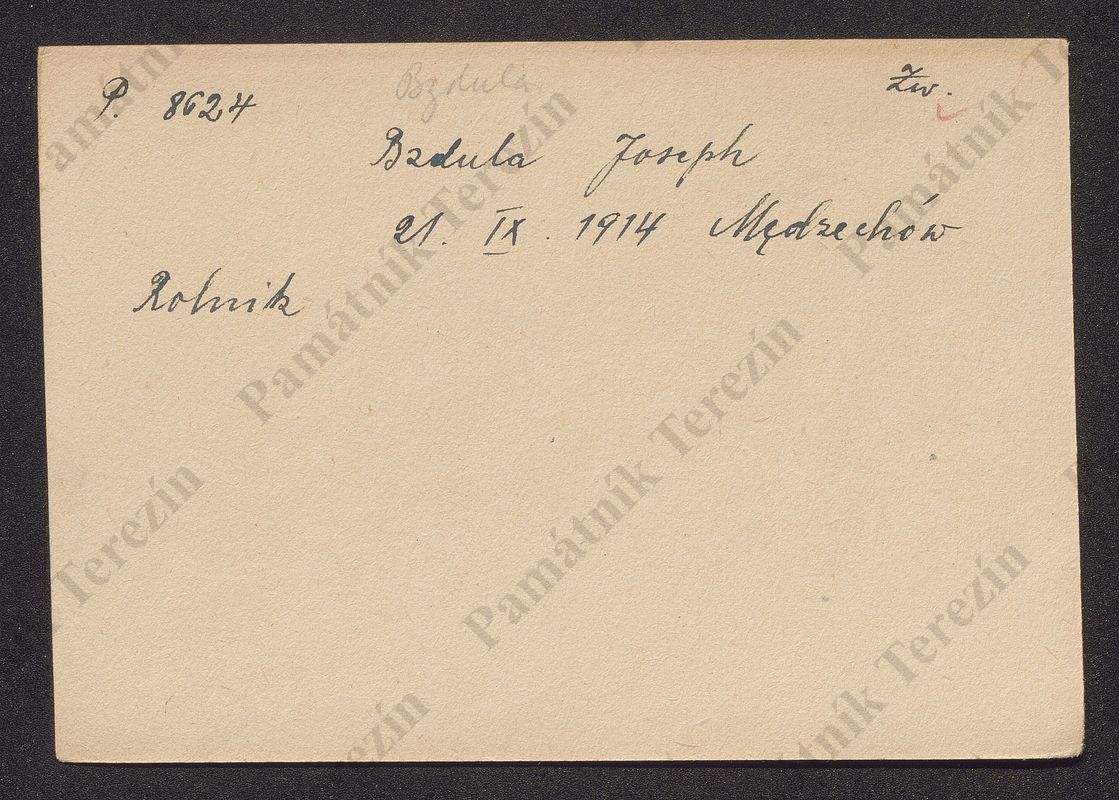 P. 8624
Bzdula
Zw.
Bzdula Joseph
21. IX. 1914 Mędrzechów
Rolnik
Památník Terezín
Památník Terezín
Památník Terezín
Památník Terezín
Památník Terezín
Terezín